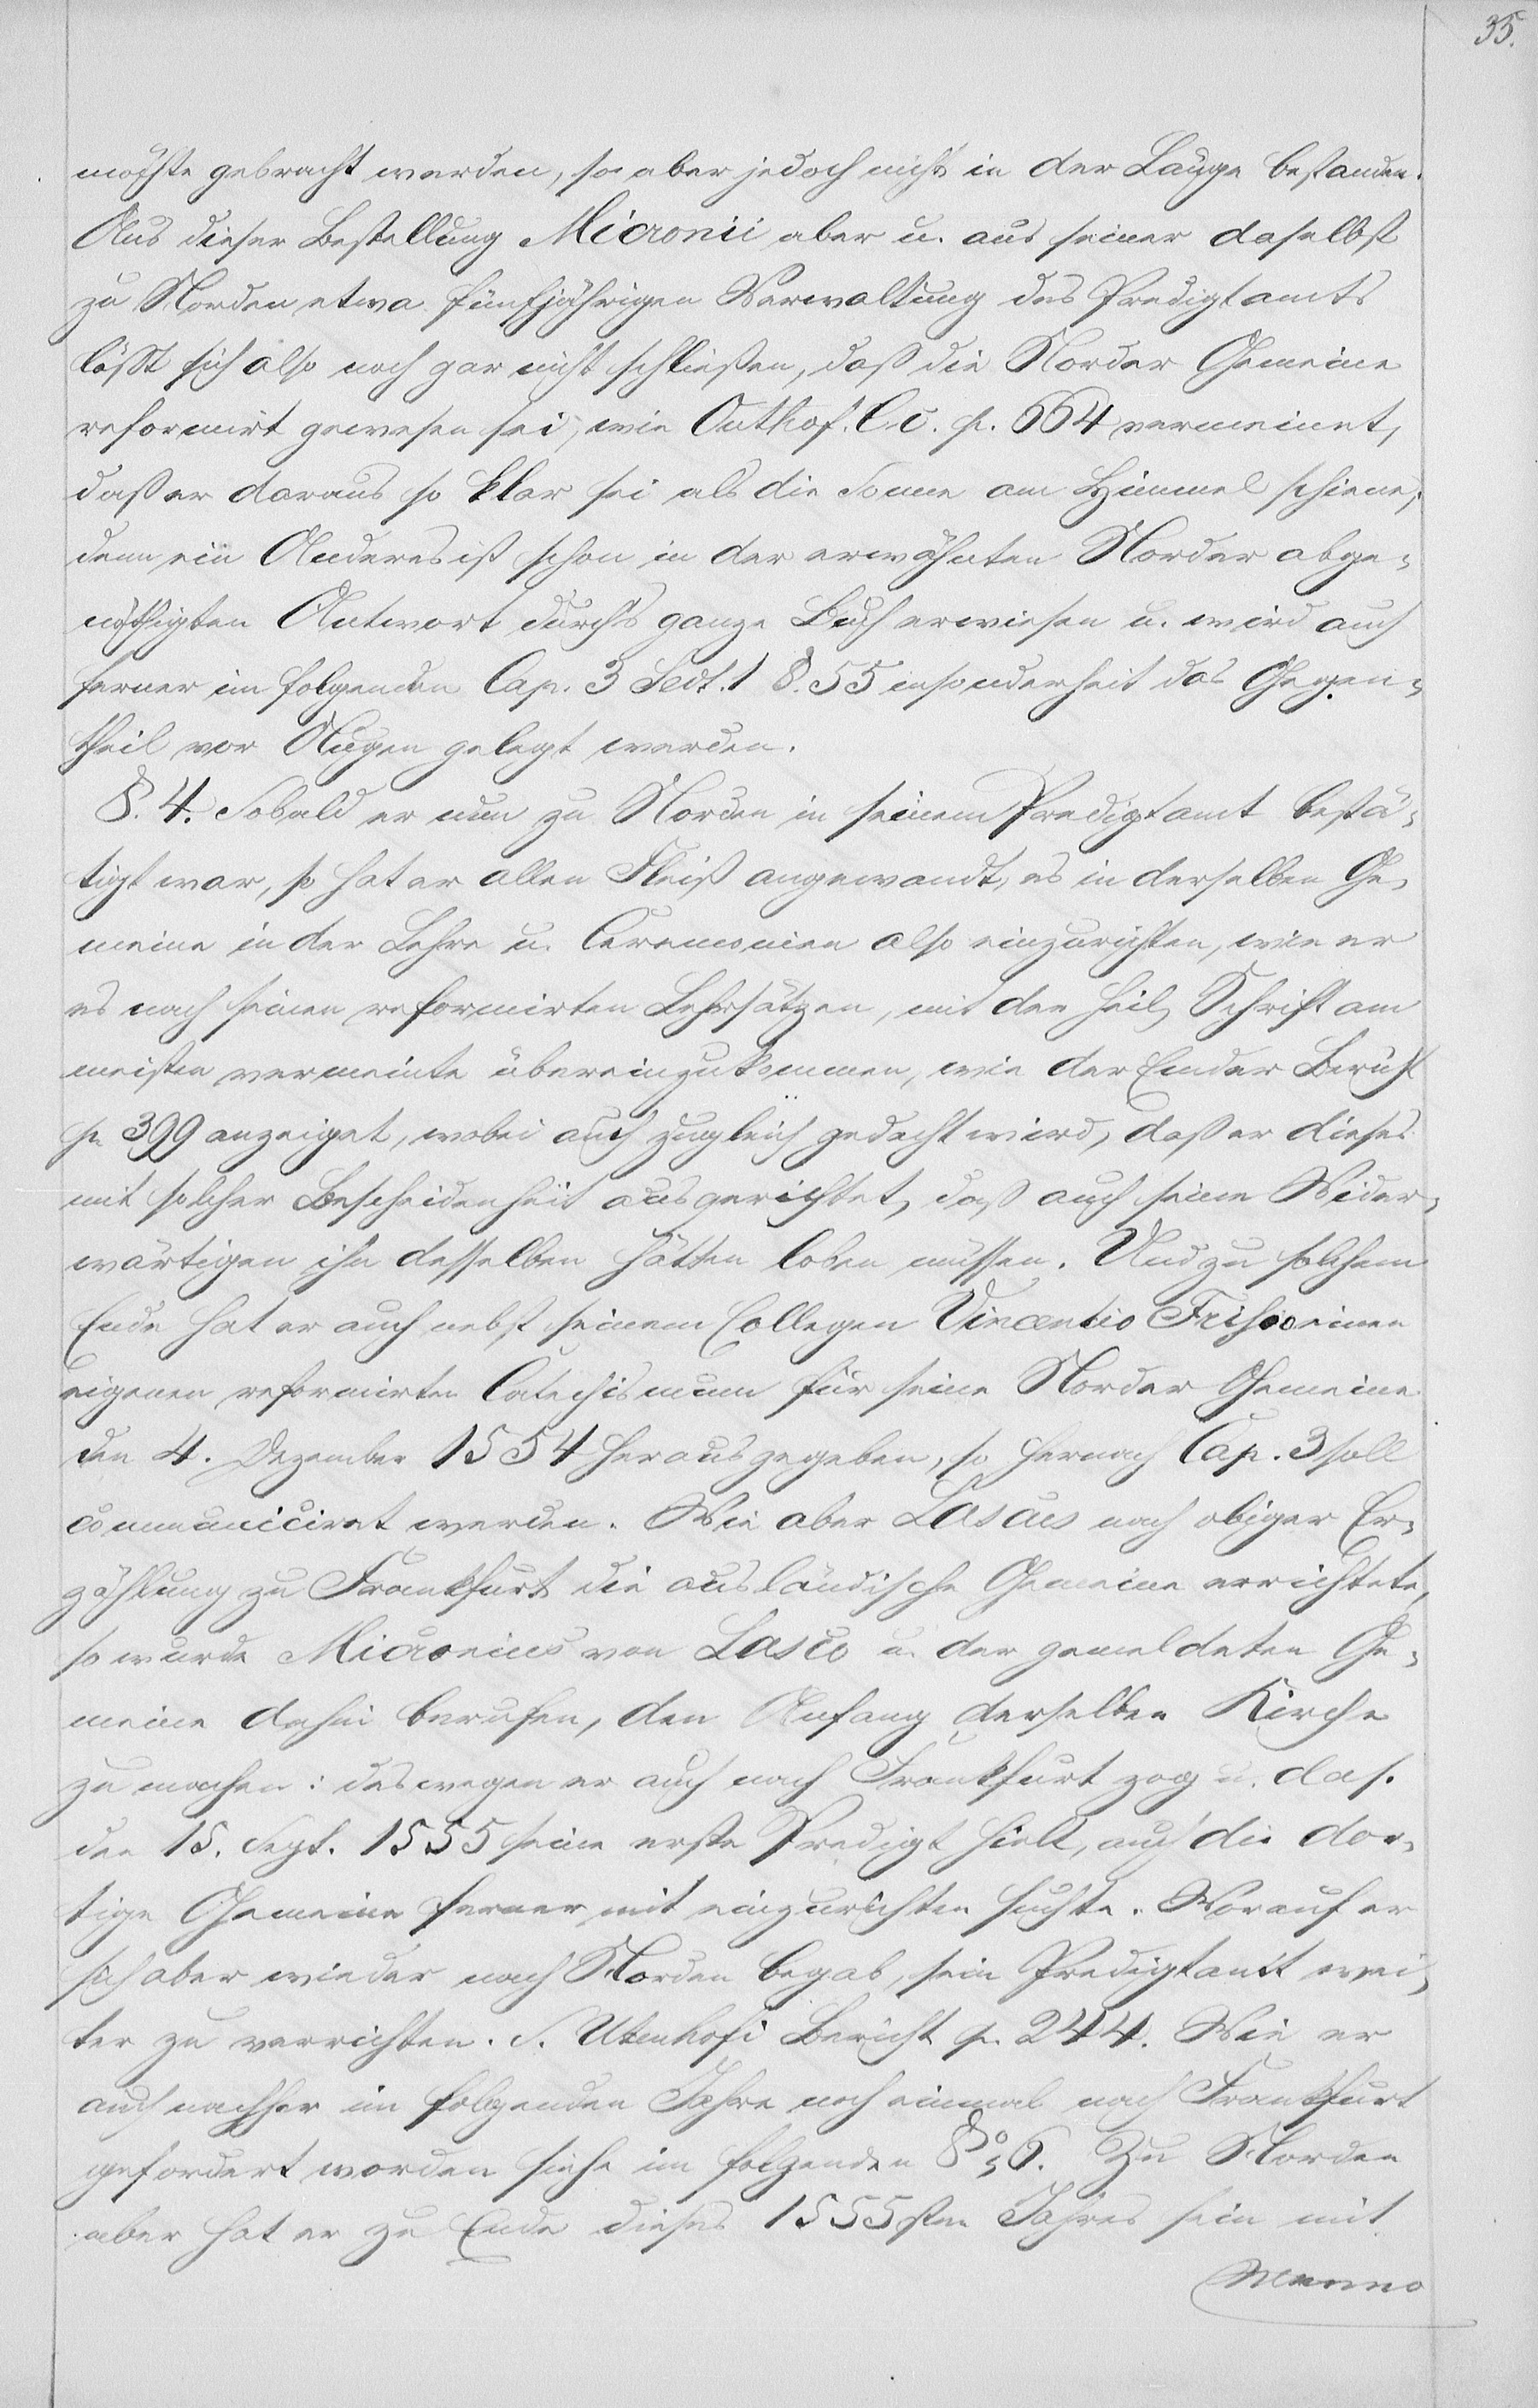 35.
möchte gebracht werden, so aber jedoch nicht in der Länge bestanden.
Aus dieser Bestellung Micronii aber u. aus seiner daselbst
zu Norden etwa fünfjährigen Verwaltung des Predigtamts
läßt sich also noch gar nicht schließen, daß die Norder Gemeine
reformirt gewesen sei, wie Outhof. l. c. p. 664 vermeinet,
daß er daraus so klar sei als die Sonne am Himmel schiene;
denn ein Anderes ist schon in der erwähnten Norder abge-
nöthigten Antwort durch's ganze Buch erwiesen u. wird auch
ferner im folgenden Cap. 3 Sect. 1 §. 55 insonderheit das Gegen-
theil vor Augen gelegt werden.
§. 4. Sobald er nun zu Norden in seinem Predigtamt bestä-
tigt war, so hat er allen Fleiß angewandt, es in derselben Ge-
meine in der Lehre u. Ceremonien also einzurichten, wie er
es nach seinen reformirten Lehrsätzen, mit der heil. Schrift am
meisten vermeinte übereinzukommen, wie der Emder Bericht
p. 399 anzeiget, wobei auch zugleich gedacht wird, daß er dieses
mit solcher Bescheidenheit ausgerichtet, daß auch seine Wider-
wärtigen ihn desselben hätten loben müssen. Und zu solchem
Ende hat er auch nebst seinem Collegen Vincentio Frisio einen
eigenen reformirten Catechismum für seine Norder Gemeine
den 4. Dezember 1554 herausgegeben, so hernach Cap. 3 soll
communiciret werden. Wie aber Lascus nach obiger Er-
zählung zu Frankfurt die ausländische Gemeine errichtete,
so wurde Micronius von Lasco u. der gemeldeten Ge-
meine dahin berufen, den Anfang derselben Kirche
zu machen: deswegen er auch nach Frankfurt zog u. das.
den 15. Sept. 1555 seine erste Predigt hielt, auch die dor-
tige Gemeine ferner mit einzurichten suchte. Worauf er
sich aber wieder nach Norden begab, sein Predigtamt wei-
ter zu verrichten. S. Utenhofi Bericht p. 244. Wie er
auch nachher im folgenden Jahre noch einmal nach Frankfurt
gefordert worden siehe im folgenden §o 6. Zu Norden
aber hat er zu Ende dieses 1555sten Jahres sein mit
Menno